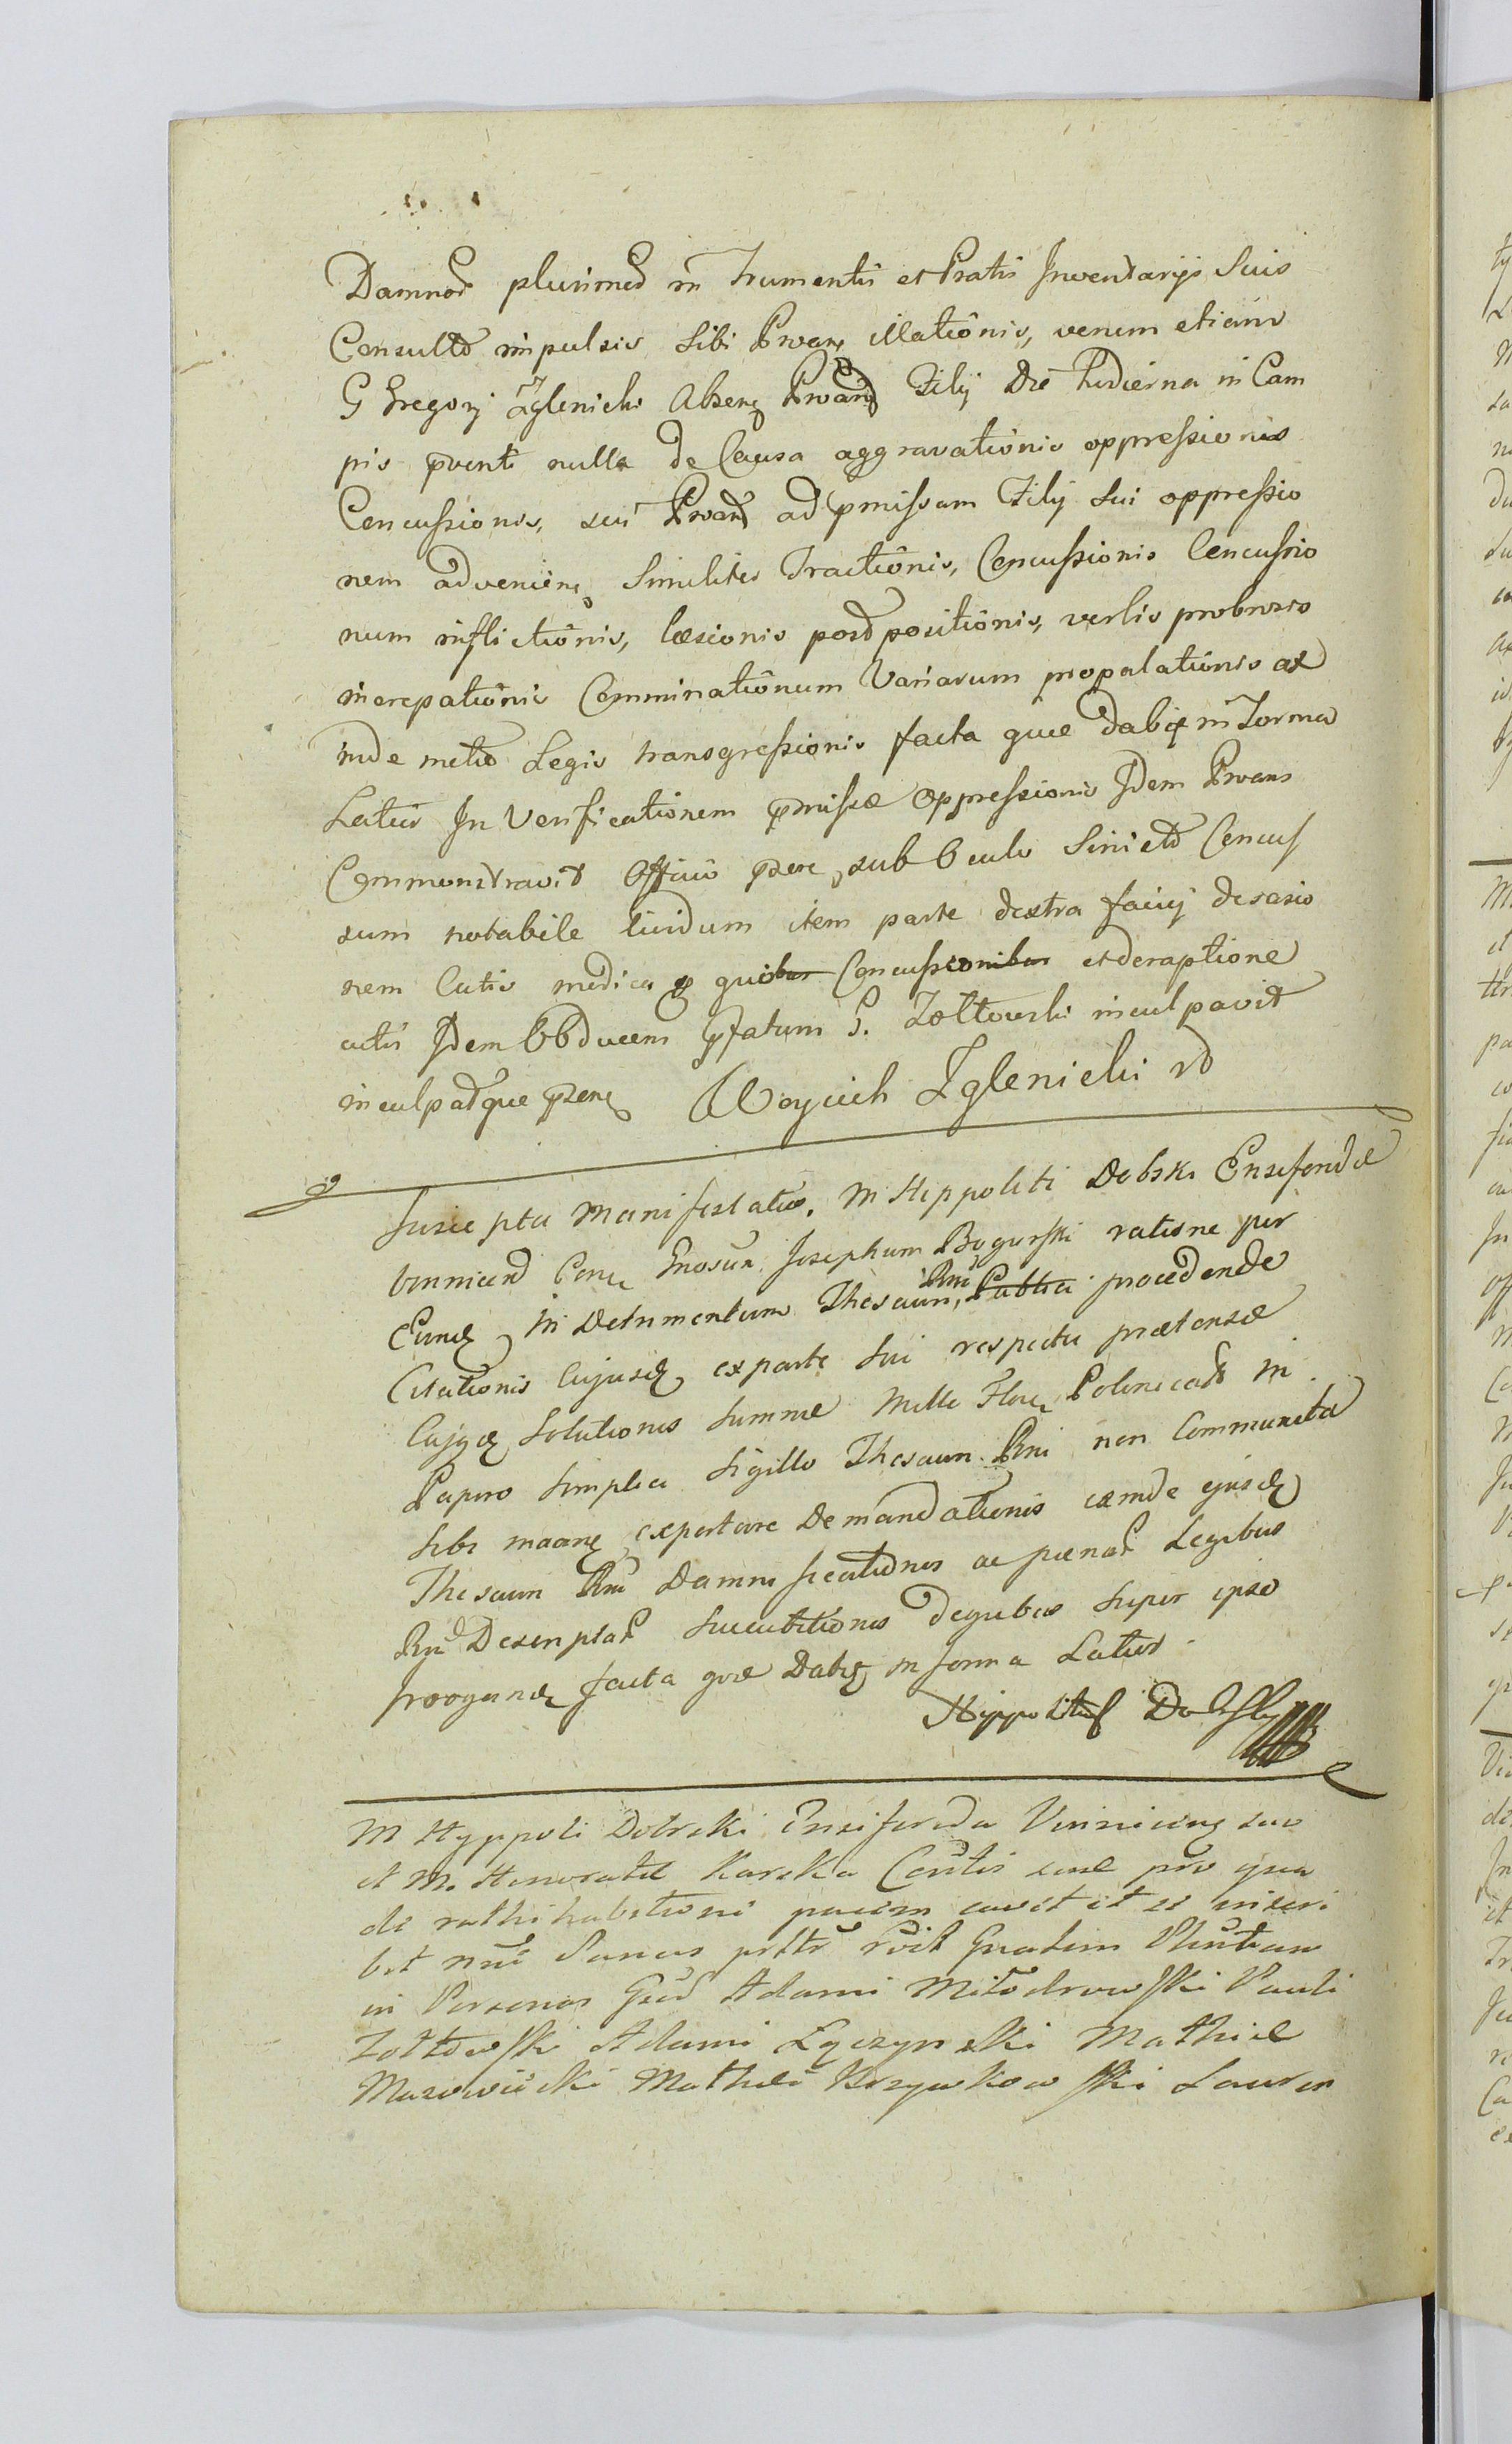 Damnor plurimor in Frumentis et Pratis Inventarijs Suis
Consulto impulsis Sibi Proan illationis, verum etiam
G Gregorj Zglenicki Absen Proan Filij Die hodierna in Cam
pis pventi nulla de Causa aggravationis oppressionis
Concussionis, seu Proan ad pmissam Filij Sui oppressio
nem advenien Similiter Tractionis, Concussionis Concussio
num inflictionis, læsionis postpositionis, verbis probrosis
increpationis Comminationum Variarum propalationis ac
inde metio Legis transgressionis facta quæ dabit in Forma
Latius In Verificationem pmissæ Oppressionis Idem Proans
Commonstravit Officio pzen, sub Oculo Sinistro Concus
sum notabile lividum item parte dextra faciej
nem Cutis medica quibus Concussionibus et deraptione
cutis Idem Obducens pfatum G. Zołtowski inculpavit
inculpatque pzen Woyciech Zglenicki
Suscepta Manifestatio. M Hippoliti Dobski Ensiferidæ
Vinnicen Con Gnosum Josephum Bogurski ratione per
Eund In Detrimentum Thesauri Rni Publici procedendæ
Citationis Cujusd ex parte Sui respectu prætensæ
Cujqd Solutionis Summæ Mille Flor Polonical in
Papiro Simplici Sigillo Thesauri Rni non Communita
Sibi expertare Demandationis eamde ejusd
Thesauri Rni Damnificationis ac pænar Legibus
Rni Descriptar Succubitionis Deqvibus Super ipso
facta quæ Dabit in forma Latius
Hippolitus Dobsky
M Hyppoli Dobrski Ensiferida Vinnicien suo
et M. Honorata Karska Contis suæ pro qua
de rathihabitioni pacem cavet et se inscri
bet Sanus Gratim Plentiam
in Personas Adami Miłodrowski Pauli
Zołtowski Adami Łączynski Mathiæ
Mazowiecki Mathei Krzywkowski Lauren